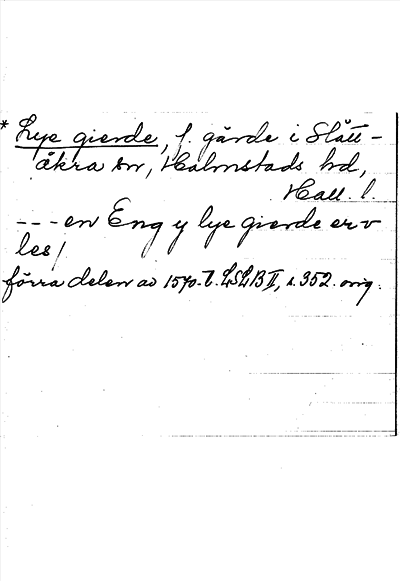 * Lye gierde, f. gärde i Slått-
åkra sn, Halmstads hd,
Hall. l.
--- en Eng y lye gierde er v
les/
förra delen av 1570-t. LSLB II, s. 352. orig.